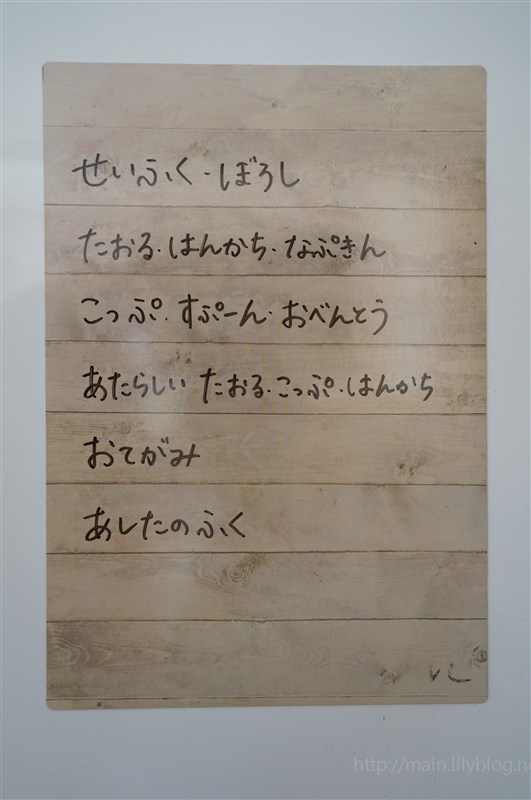 せいふく・ぼうし
たおる・はんかち・なぷきん
こっぷ・すぷーん・おべんとう
あたらしい たおる・こっぷ・はんかち
おてがみ
あしたのふく
http://main.lilyblog.ne